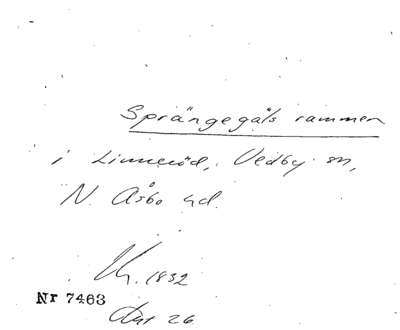 Sprängegåls rammen
i Linneröd, Vedby sn,
N. Åsbo hd.
Kr. 1832
Nr 7463
26